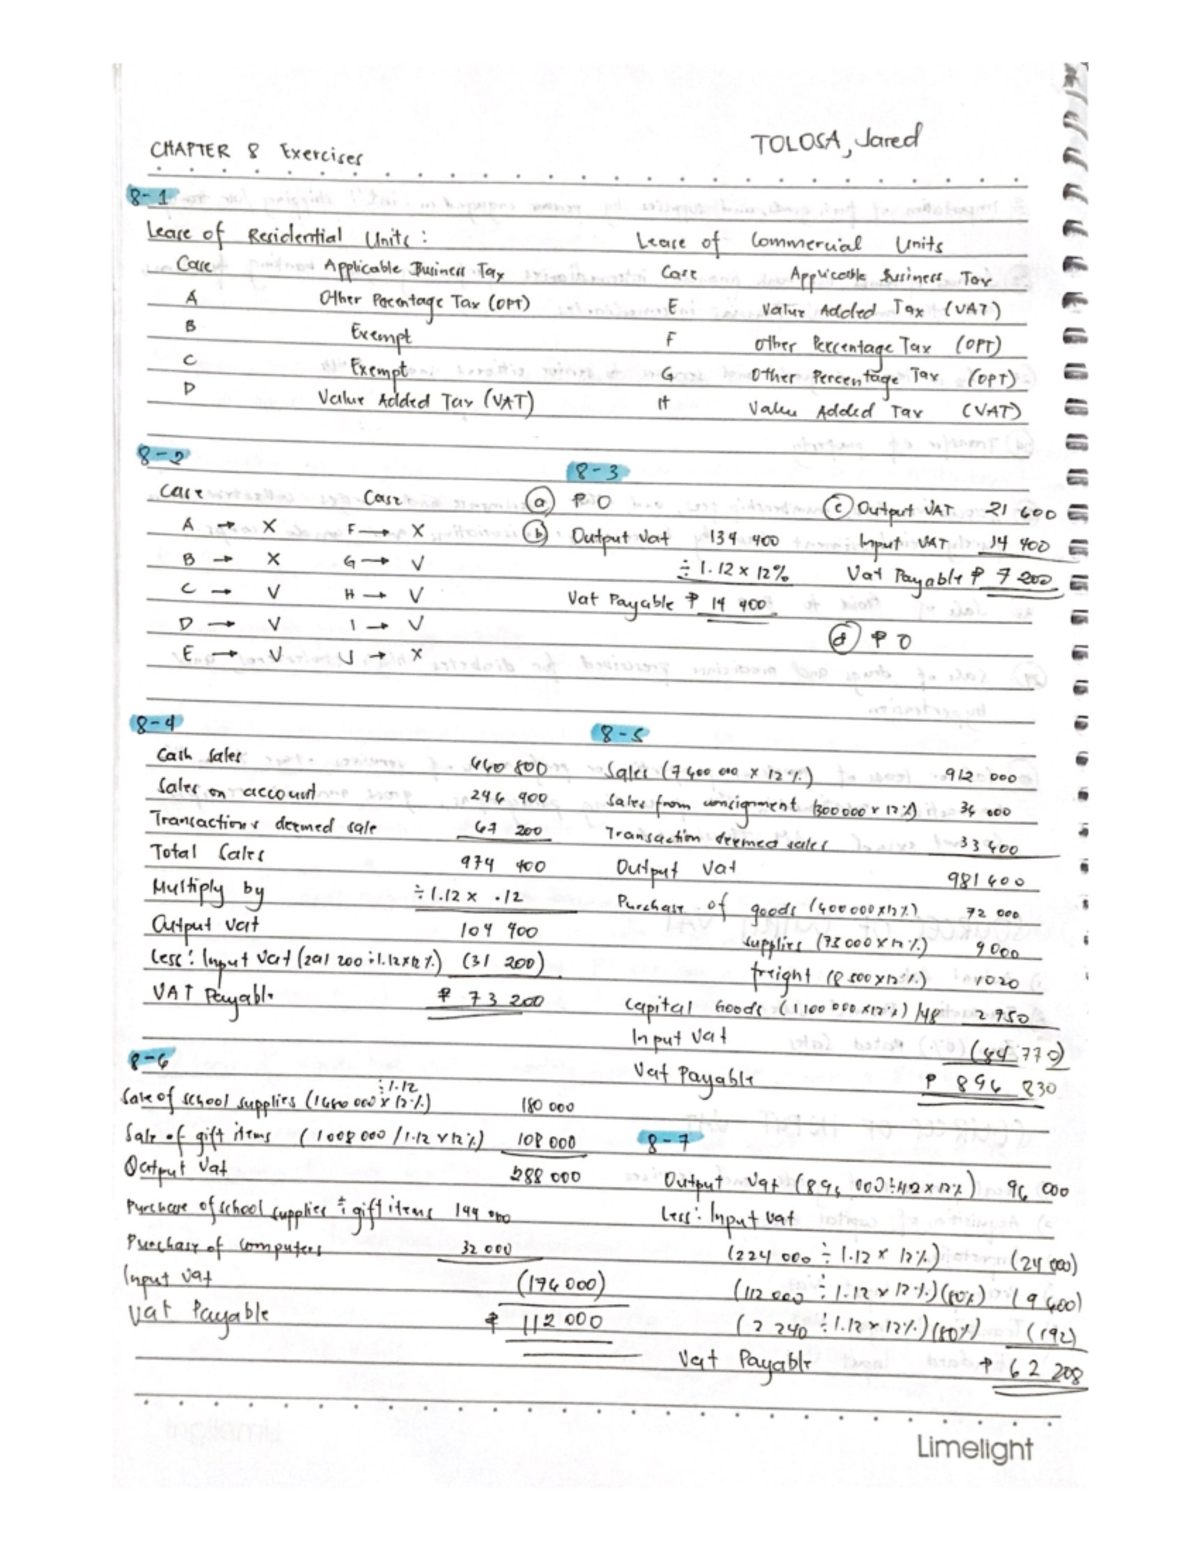 CHAPTER 8 Exercises
TOLOSA, Jared
8-1
Lease of Residential Units :
Case Applicable Business Tax
A Other Pecentage Tax (OPT)
B Exempt
C Exempt
D Value Added Tax (VAT)
Lease of Commercial Units
Case Applicable Business Tax
E Value Added Tax (VAT)
F Other Percentage Tax (OPT)
G Other Percentage Tax (OPT)
H Value Added Tax (VAT)
8-2
Case Case
A → X F → X
B → X G → V
C → V H → V
D → V I → V
E → V J → X
8-3
(a) ₱ 0
(b) Output Vat 134 400
÷ 1.12 x 12%
Vat Payable ₱ 14 400
(c) Output VAT 21 600
Input VAT 14 400
Vat Payable ₱ 7 200
(d) ₱ 0
8-4
Cash Sales 660 800
Sales on account 246 400
Transactions deemed sale 67 200
Total Sales 974 400
Multiply by ÷ 1.12 x .12
Output Vat 104 400
Less: Input Vat (291 200 ÷ 1.12 x 12%) (31 200)
VAT Payable ₱ 73 200
8-5
Sales (7 600 000 x 12%) 912 000
Sales from consignment (300 000 x 12%) 36 000
Transaction deemed sales 33 600
Output Vat 981 600
Purchase of goods (600 000 x 12%) 72 000
supplies (75 000 x 12%) 9 000
freight (8 500 x 12%) 1 020
Capital Goods (1 100 000 x 12%) /48 2 750
Input Vat (84 770)
Vat Payable ₱ 896 830
8-6
÷ 1.12
Sale of school supplies (1 680 000 x 12%) 180 000
Sale of gift items (1 008 000 / 1.12 x 12%) 108 000
Output Vat 288 000
Purchase of school supplies & gift items 144 000
Purchase of computers 32 000
Input Vat (176 000)
Vat Payable ₱ 112 000
8-7
Output Vat (896 000 ÷ 1.12 x 12%) 96 000
Less: Input Vat
(224 000 ÷ 1.12 x 12%) (24 000)
(112 000 ÷ 1.12 x 12%) (80%) (9 600)
(2 240 ÷ 1.12 x 12%) (80%) (192)
Vat Payable ₱ 62 208
Limelight